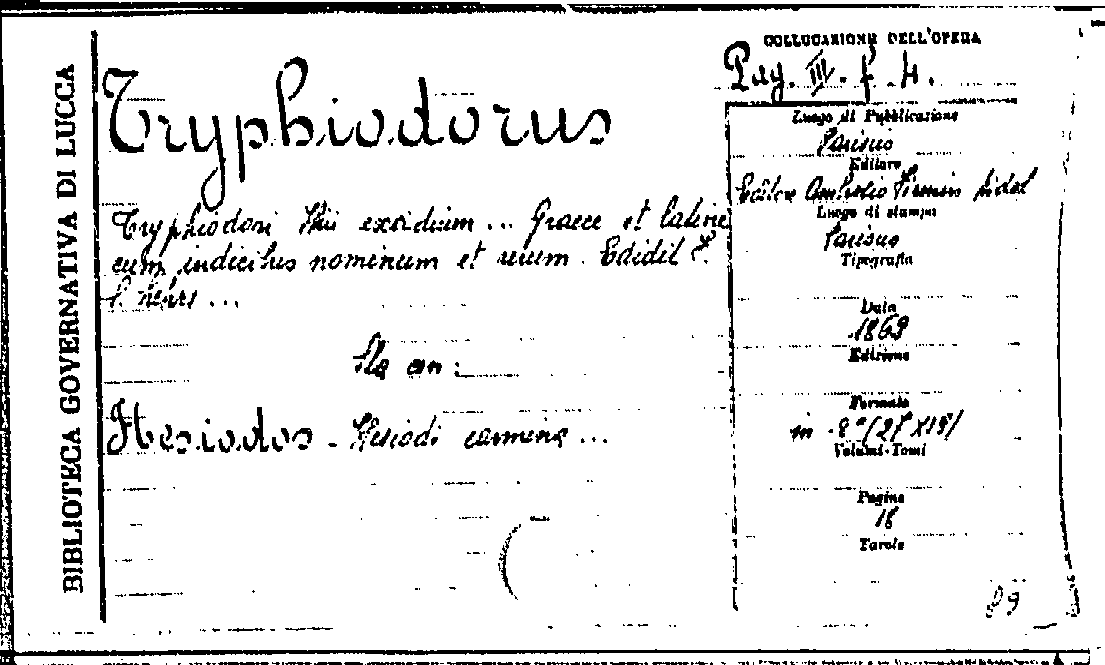 BIBLIOTECA GOVERNATIVA DI LUCCA
Tryphiodorus
Tryphiodori Ilii excidium ... Graece et latine
cum indicibus nominum et rerum. Edidit F.
S. Lehrs ...
Sta con:
Hesiodos - Hesiodi carmina ...
COLLOCAZIONE DELL'OPERA
Pag. III. f. 4.
Luogo di Pubblicazione
Parisiis
Editore
Editore Ambrosio Firmin Didot
Luogo di stampa
Parisiis
Tipografia
Data
1869
Edizione
Formato
in -8°/27 X18/
Volumi-Tomi
Pagine
18
Tavole
89